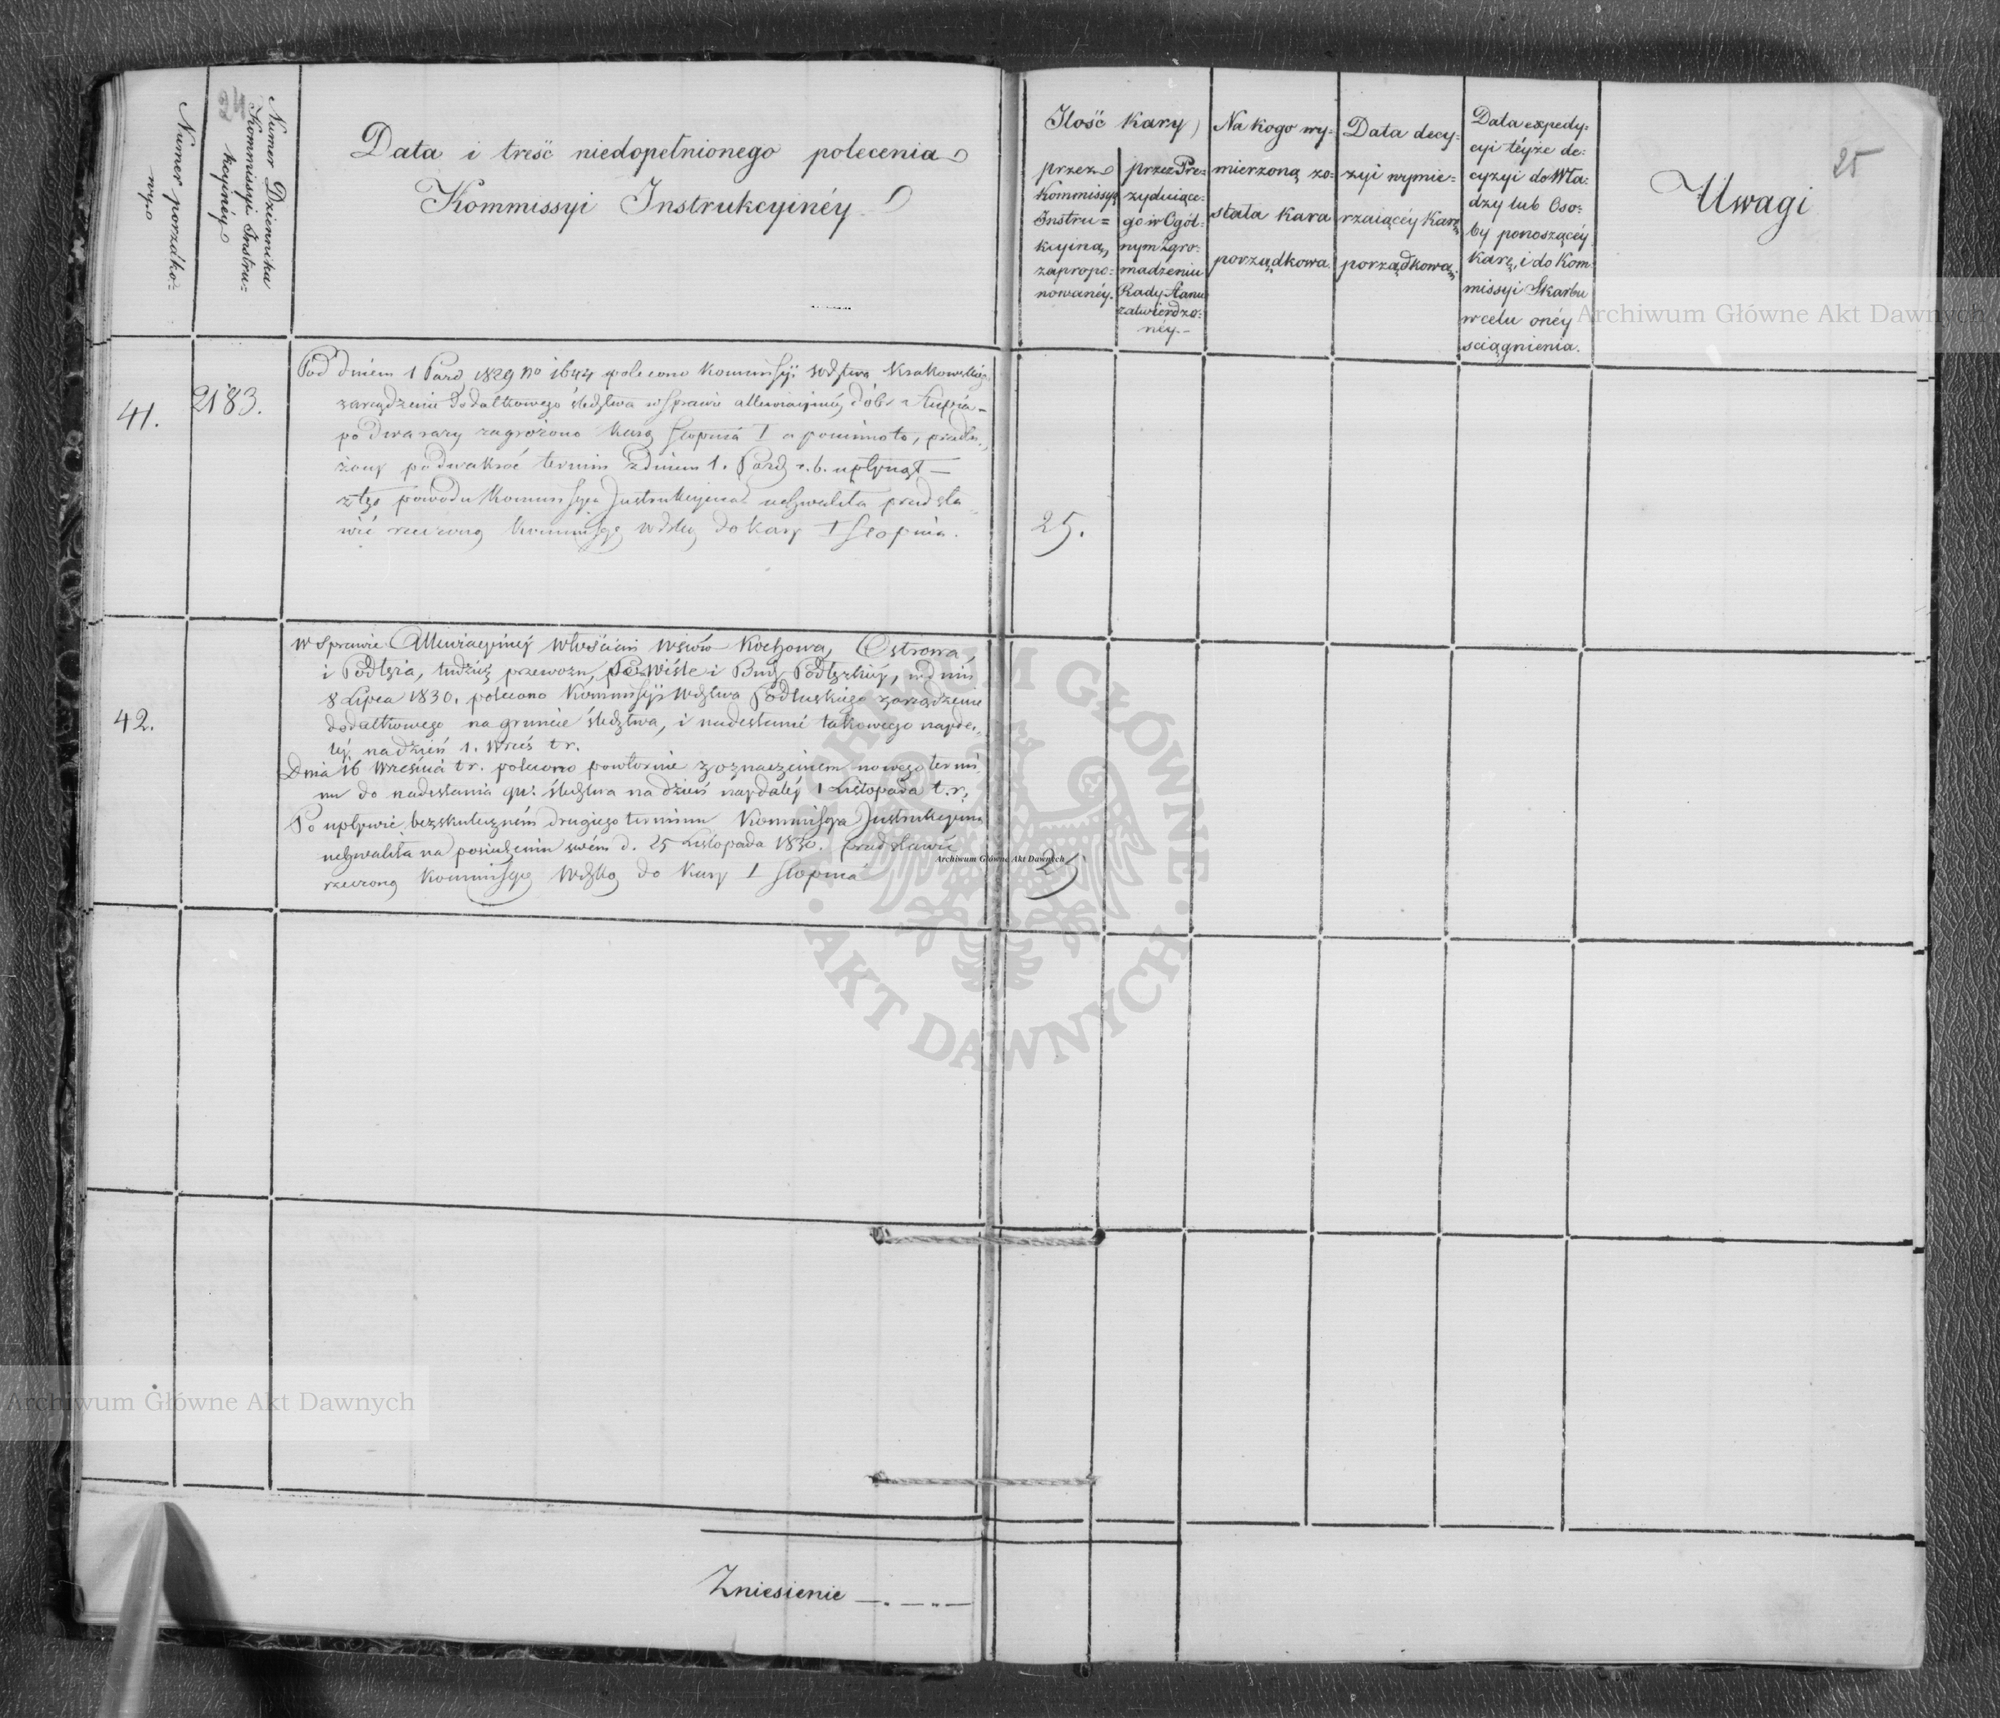 Numer porząko-
wy
Numer Dziennika
Kommissyi Instru-
kcyinéy
Data i treść niedopełnionego polecenia
Kommissyi Instrukcyinéy.
Ilość kary
przez
Kommissyę
Instru=
kcyiną
zapropo-
nowanéy.
przez Pre-
zyduiące-
go w Ogól-
nym Zgro-
madzeniu
Rady Stanu
zatwierdzo-
néy.
Na kogo wy-
mierzoną zo-
stała kara
porządkowa.
Data decy-
zyi wymie-
rzaiącéy karę
porządkową.
Data expedy-
cyi téyże de-
cyzyi do Wła-
dzy lub Oso-
by ponoszącéy
karę, i do Kom-
missyi Skarbu
w celu onéy
sciągnienia.
Uwagi
25
41.
2183.
Pod dniem 1 Paźd. 1829 No 1644 polecono Kommissyi Wdztwa Krakowskiego
zarządzenie dodatkowego śledztwa w sprawie alleviacyinéy dóbr
po dwa razy zagrożono karą stopnia I a pomimo to, przedłu-
żony podwakroć termin z dniem 1. Paźd. r. b. upłynął —
z tego powodu Kommissya Instrukcyina uchwaliła przedsta-
wić rzeczoną Kommissyę Wdzką do kary I stopnia.
25.
42.
W sprawie Alleviacyinéy włościan wsiów Kochowa, Ostrowa,
i Podłęża, tudzież przewozu, po Wiśle i Budy Podłęzkiéy, pod dniem
8 Lipca 1830. polecono Kommissyi Wdztwa Podlaskiego zarządzenie
dodatkowego na gruncie śledztwa, i nadesłanie takowego napda-
léy na dzień 1. Wrześ. t. r.
Dnia 16 Września t. r. polecono powtórnie z oznaczeniem nowego termi-
nu do nadesłania śledztwa na dzień naydaléy 1 Listopada t. r.
Po upływie bezskutecznem drugiego terminu Kommissya Instrukcyina
uchwaliła na posiedzeniu swém d. 25 Listopada 1830. przedstawić
rzeczoną Kommissyę Wdzką do kary I stopnia
25
Zniesienie
Archiwum Główne Akt Dawnych
Archiwum Główne Akt Dawnych
Archiwum Główne Akt Dawnych
ARCHIWUM GŁÓWNE
AKT DAWNYCH